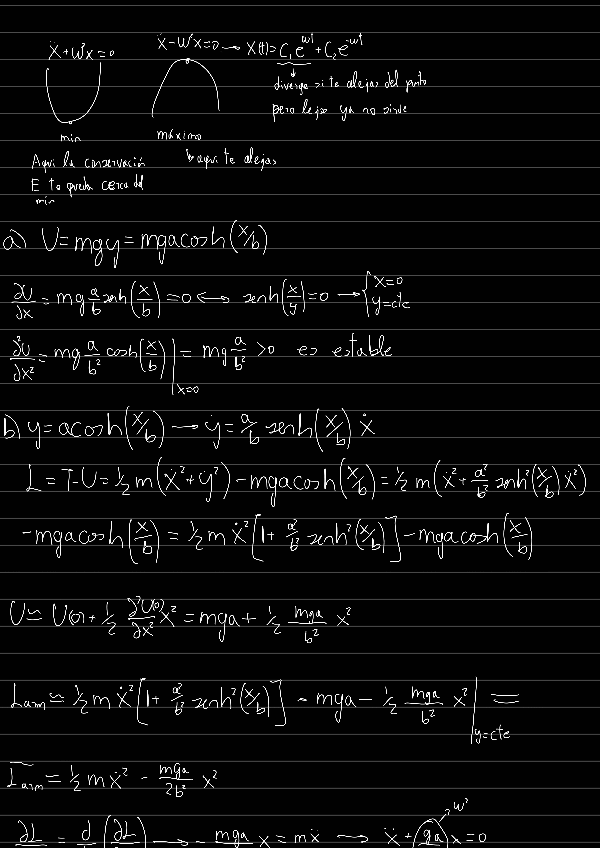 Ẍ+W²X=0
Ẍ-W²X=0 → X(t)=C₁e^{wt}+C₂e^{-wt}
diverge si te alejas del punto
pero lejos ya no sirve
min
máximo
Aqui la conservación
E te queda cerca del
min
↳ aqui te alejas
a) U=mgy=mgacosh(x/b)
∂U/∂x = mg a/b senh(x/b)=0 ⟷ senh(x/y)=0 → { x=0
y=cte
∂²U/∂x² = mg a/b² cosh(x/b)|x=0 = mg a/b² >0 es estable
b) y=acosh(x/b) → ẏ= a/b senh(x/b) ẋ
L=T-U=½m(ẋ²+ẏ²)-mgacosh(x/b)=½m(ẋ²+a²/b² senh²(x/b)ẋ²)
-mgacosh(x/b) = ½mẋ²[1+a²/b² senh²(x/b)]-mgacosh(x/b)
U≃U(0)+½ ∂²U(0)/∂x² x²=mga+½ mga/b² x²
Larm≃½mẋ²[1+a²/b² senh²(x/b)] - mga-½ mga/b² x²|y=cte =
Larm=½mẋ² - mga/2b² x²
w²
∂L = d (∂L) → - mga x=mẍ → ẍ+(ga)x=0